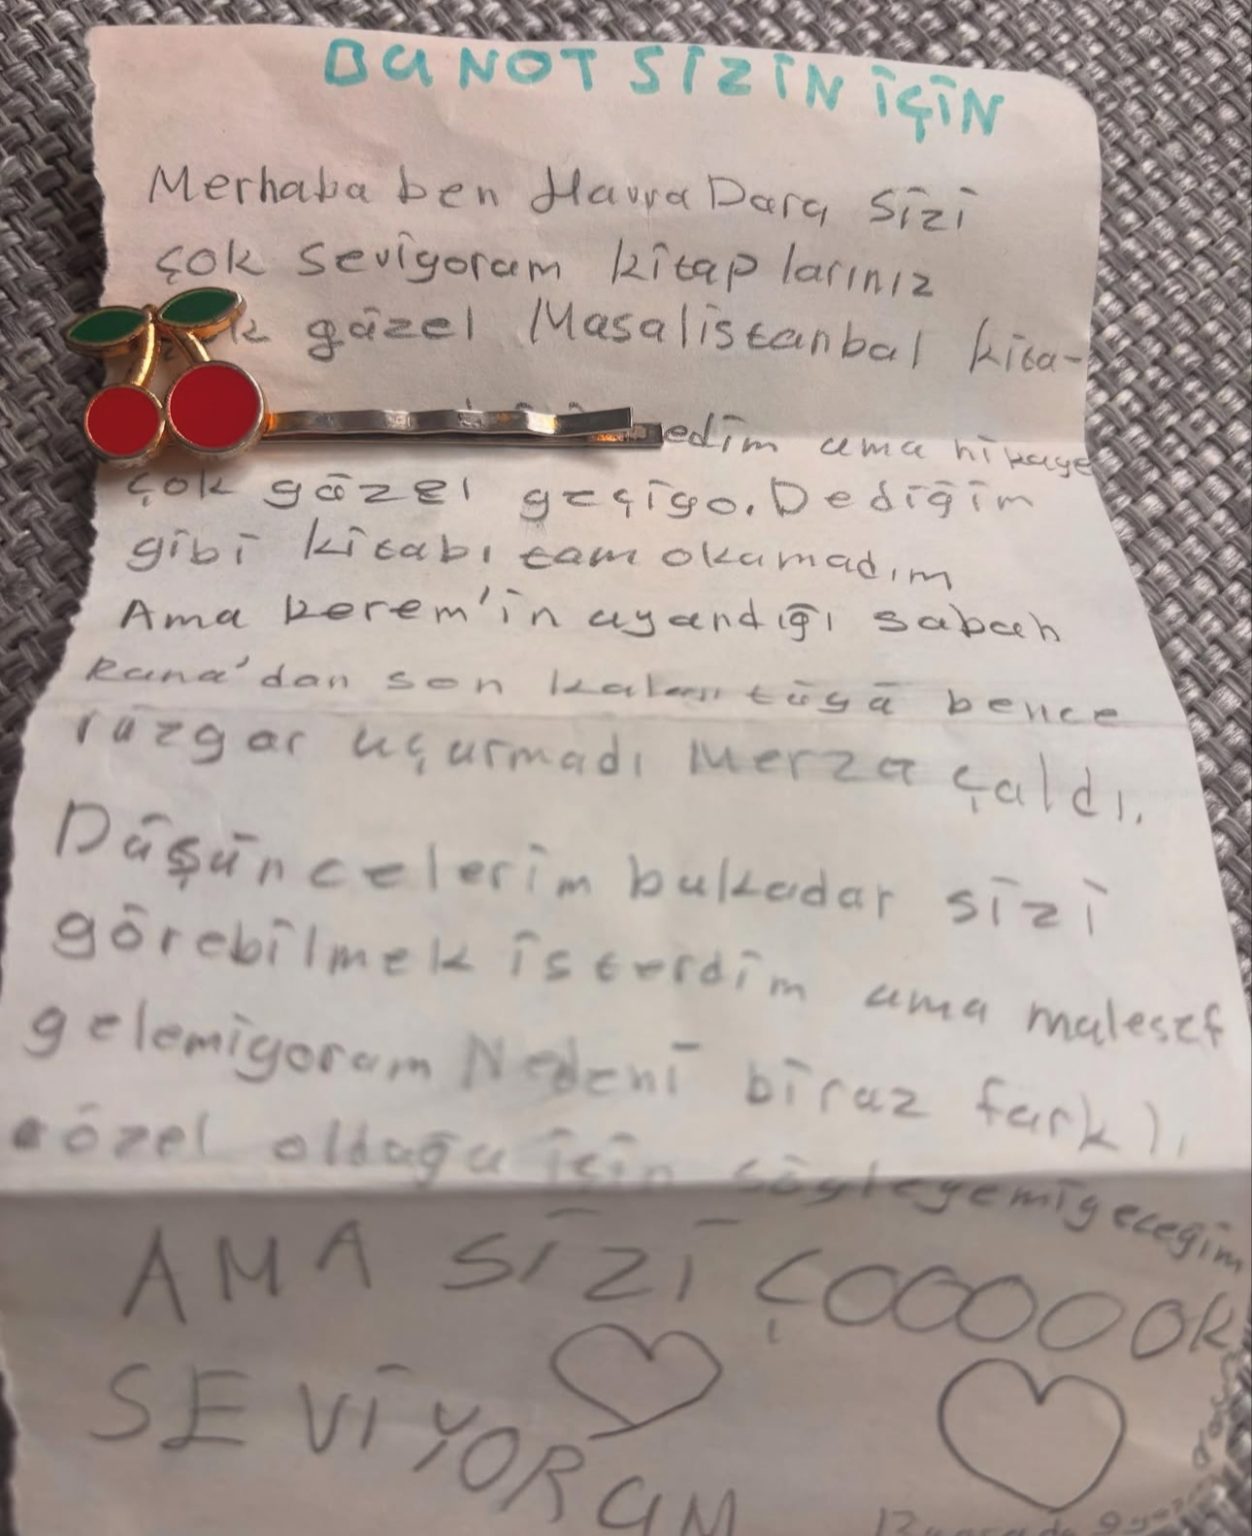 BU NOT SİZİN İÇİN
Merhaba ben Havva Dara sizi
çok seviyoram kitap larınız
k güzel Masalistanbul kita-
edim ama hikaye
çok güzel geçiyo. Dediğim
gibi kitabı tam okumadım
Ama kerem'in uyandığı sabah
Rana'dan son kalan tüyü bence
rüzgar uçurmadı Merza çaldı.
Düşüncelerim bukadar sizi
görebilmek isterdim ama malesef
gelemiyorum Nedeni biraz farklı
özel olduğu için söyleyemiyeceğim
AMA SİZİ ÇOOOOOK
SEVİYORUM